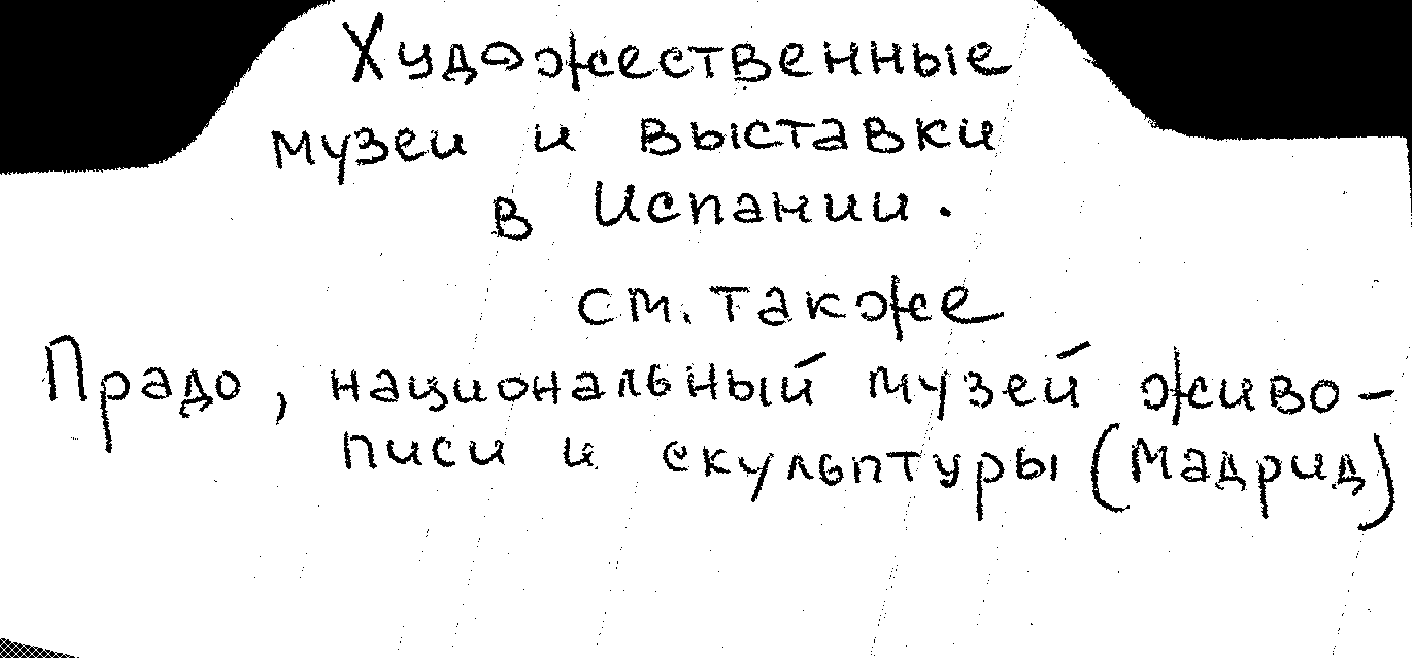 Художественные
музеи и выставки
в Испании.
см. также
Прадо, национальный музей живо-
писи и скульптуры (Мадрид)